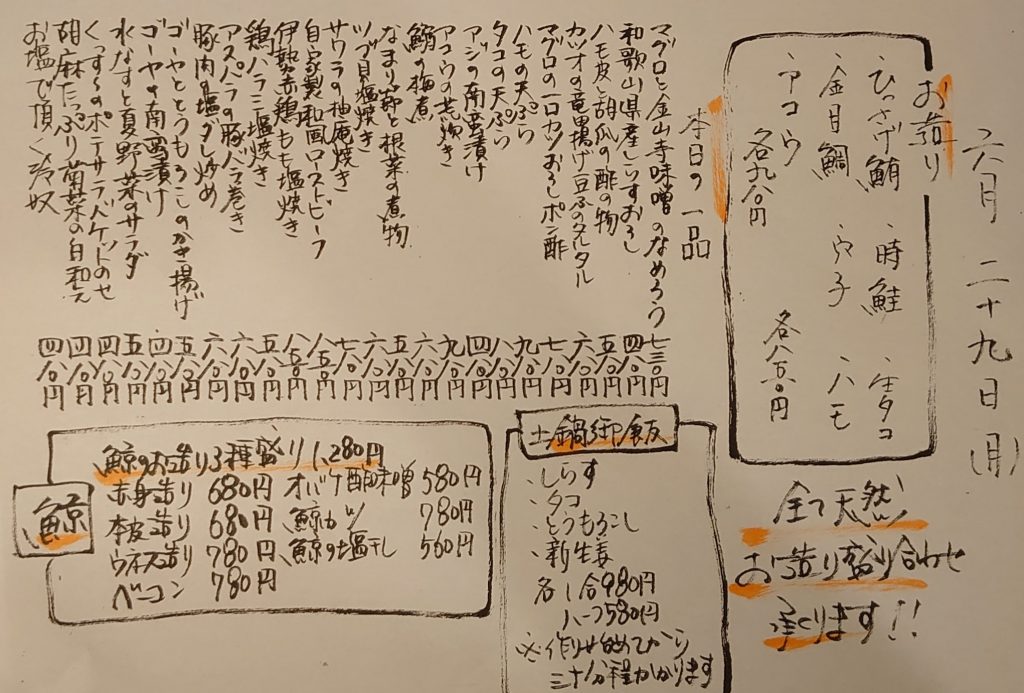 六月二十九日(月)
お造り
・ひっさげ鮪 ・時鮭 ・生タコ
・金目鯛 ・穴子 ・ハモ
・アコウ
各九八〇円 各八五〇円
全て天然
お造り盛り合わせ
承ります!!
本日の一品
マグロと金山寺味噌のなめろう 七三〇円
和歌山県産しらすおろし 四八〇円
ハモ皮と胡瓜の酢の物 五八〇円
カツオの竜田揚げ豆ふのタルタル 六八〇円
マグロの一口カツおろしポン酢 七八〇円
ハモの天ぷら 九八〇円
タコの天ぷら 八八〇円
アジの南蛮漬け 四八〇円
アコウの煮付き 九八〇円
鰯の梅煮 六八〇円
なまり節と根菜の煮物 五八〇円
ツブ貝塩焼き 六八〇円
サワラの柚庵焼き 七八〇円
自家製和風ローストビーフ 八五〇円
伊勢赤鶏もも塩焼き 八五〇円
鶏ハラミ塩焼き 五八〇円
アスパラの豚バラ巻き 六八〇円
豚肉の塩ダレ炒め 六八〇円
ゴーヤととうもろこしのかき揚げ 五八〇円
ゴーヤの南蛮漬け 四八〇円
水なすと夏野菜のサラダ 五八〇円
ポテサラバケットのせ 四八〇円
胡麻たっぷり菊菜の白和え 四八〇円
お塩で頂く冷奴 四八〇円
土鍋御飯
・しらす
・タコ
・とうもろこし
・新生姜
各1合980円
ハーフ580円
※作り始めてから
三十分程かかります
鯨
鯨のお造り3種盛り 1,280円
赤身造り 680円 オバケ酢味噌 580円
本皮造り 680円 鯨カツ 780円
ウネス造り 780円 鯨の塩干し 560円
ベーコン 780円